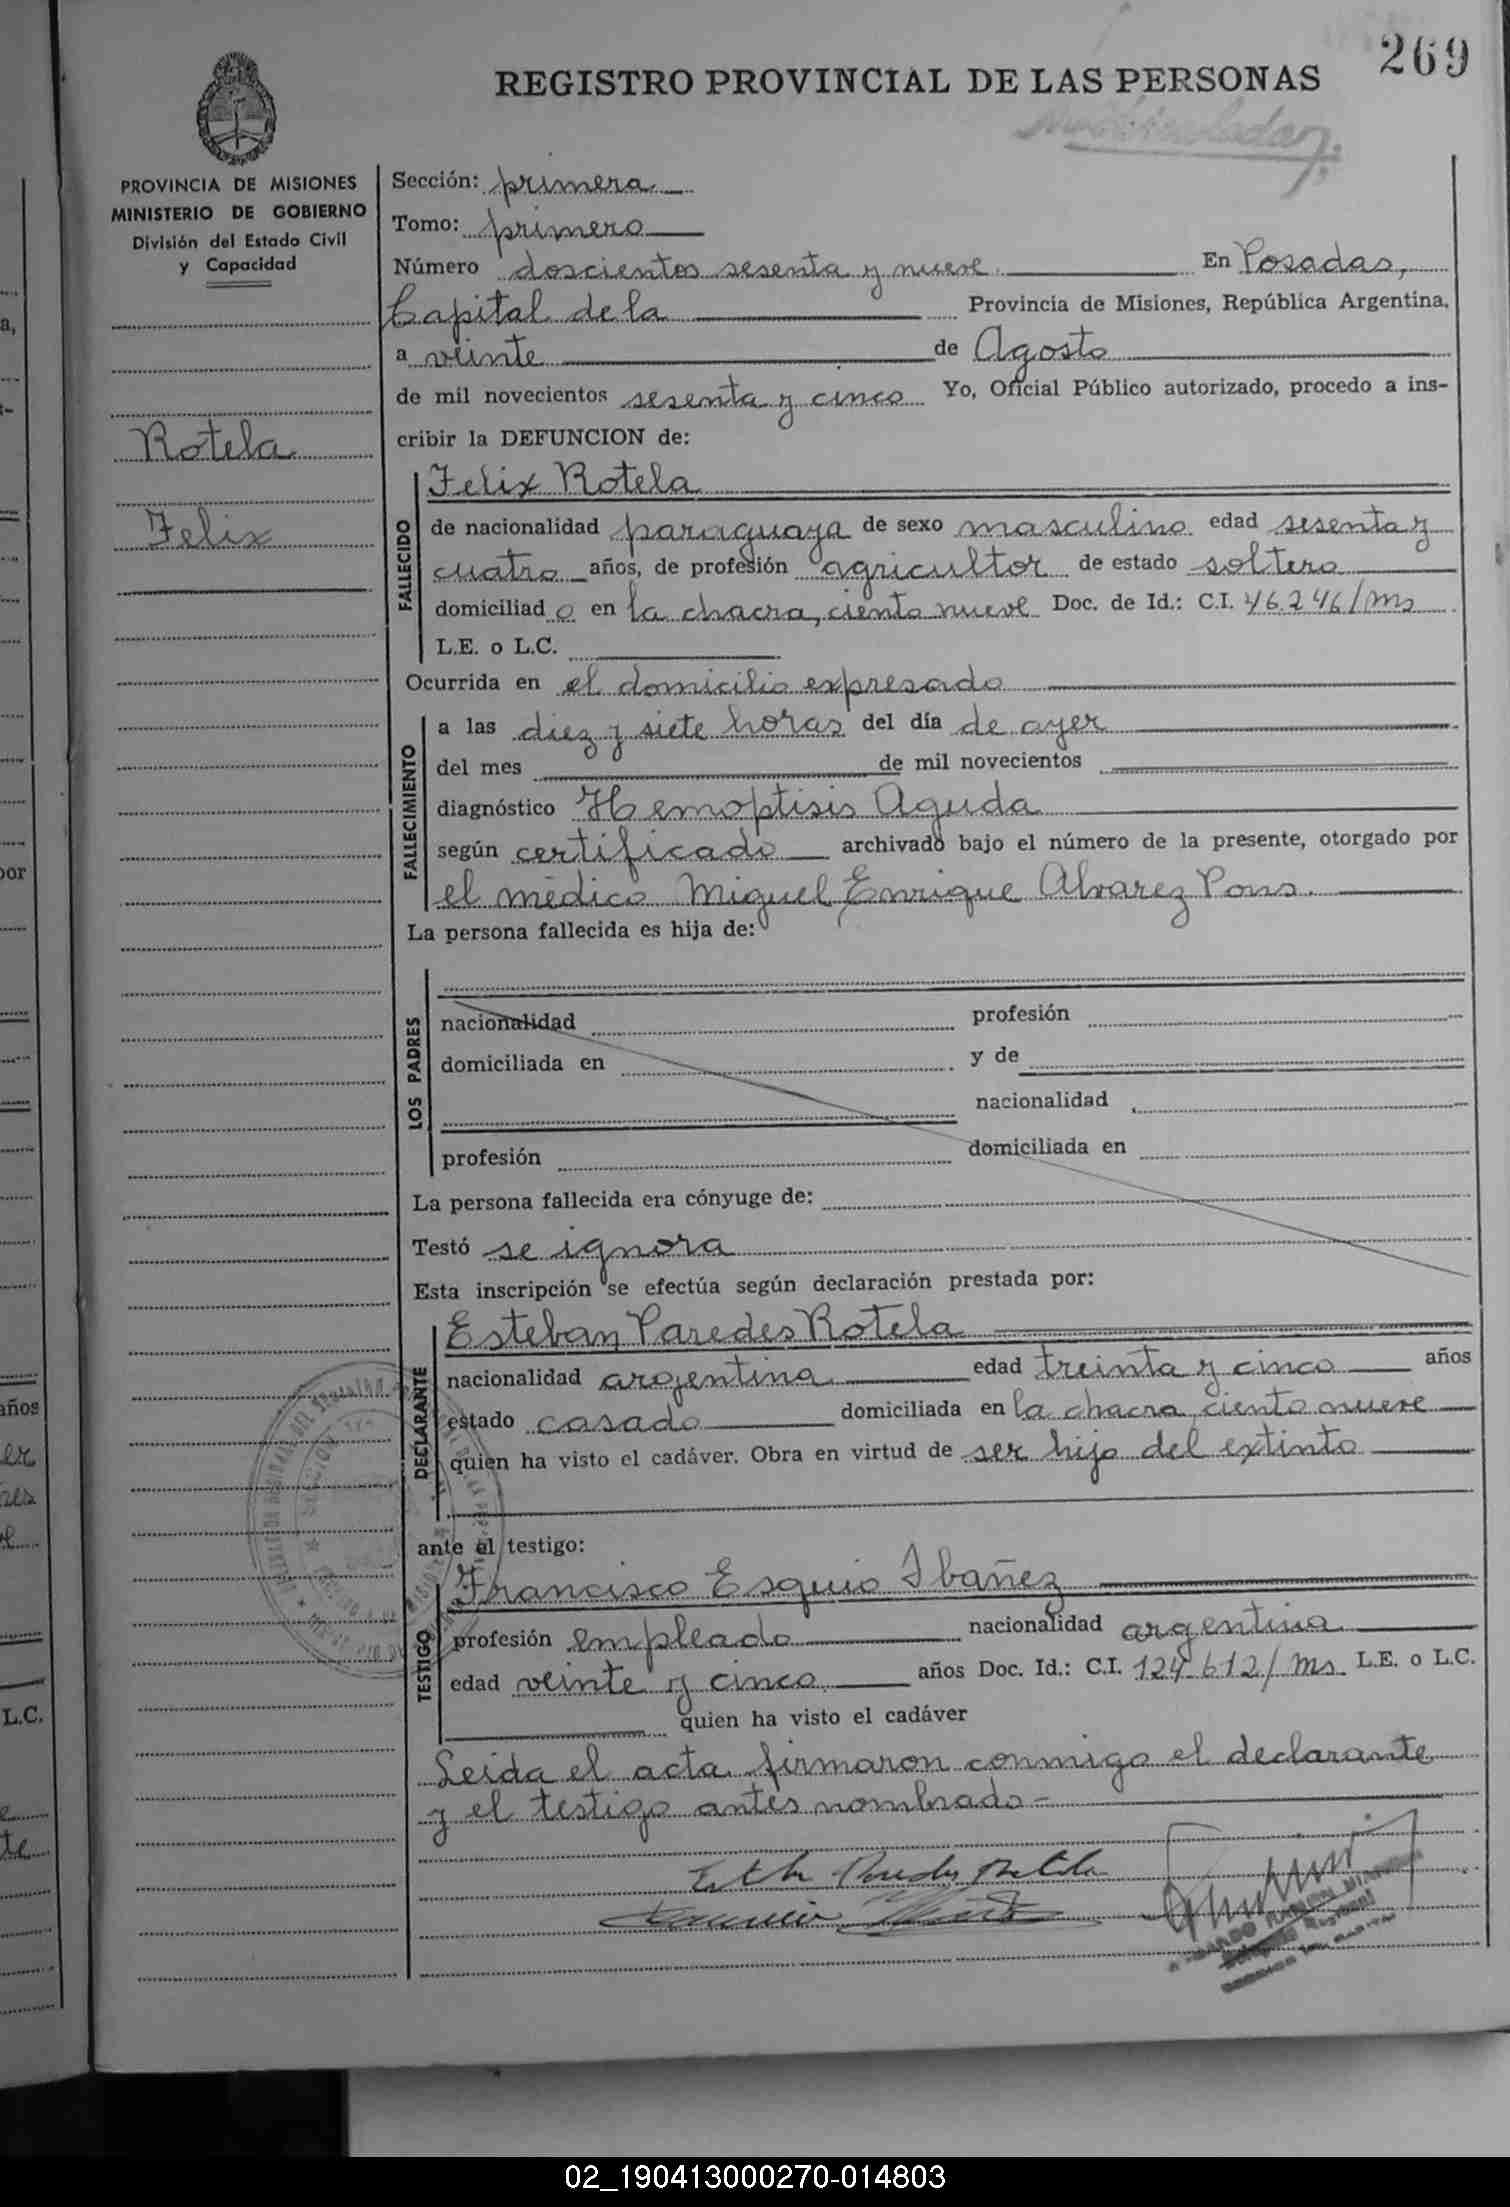 269
REGISTRO PROVINCIAL DE LAS PERSONAS
PROVINCIA DE MISIONES
MINISTERIO DE GOBIERNO
División del Estado Civil
y Capacidad
Rotela
Felix
Sección: primera
Tomo: primero
Número doscientos sesenta y nueve En Posadas,
Capital de la Provincia de Misiones, República Argentina,
a veinte de Agosto
de mil novecientos sesenta y cinco Yo, Oficial Público autorizado, procedo a ins-
cribir la DEFUNCION de:
FALLECIDO
Felix Rotela
de nacionalidad paraguaya de sexo masculino edad sesenta y
cuatro años, de profesión agricultor de estado soltero
domiciliad o en la chacra, ciento nueve Doc. de Id.: C.I. 46.246/Ms
L.E. o L.C.
Ocurrida en el domicilio expresado
FALLECIMIENTO
a las diez y siete horas del día de ayer
del mes de mil novecientos
diagnóstico Hemoptisis Aguda
según certificado archivado bajo el número de la presente, otorgado por
el médico Miguel Enrique Alvarez Pons.
La persona fallecida es hija de:
LOS PADRES
nacionalidad profesión
domiciliada en y de
nacionalidad
profesión domiciliada en
La persona fallecida era cónyuge de:
Testó se ignora
Esta inscripción se efectúa según declaración prestada por:
DECLARANTE
Esteban Paredes Rotela
nacionalidad argentina edad treinta y cinco años
estado casado domiciliada en la chacra ciento nueve
quien ha visto el cadáver. Obra en virtud de ser hijo del extinto
ante el testigo:
TESTIGO
Francisco Esquio Ibañez
profesión empleado nacionalidad argentina
edad veinte y cinco años Doc. Id.: C.I. 124.612/Ms. L.E. o L.C.
quien ha visto el cadáver
Leida el acta firmaron conmigo el declarante
y el testigo antes nombrado-
02_190413000270-014803